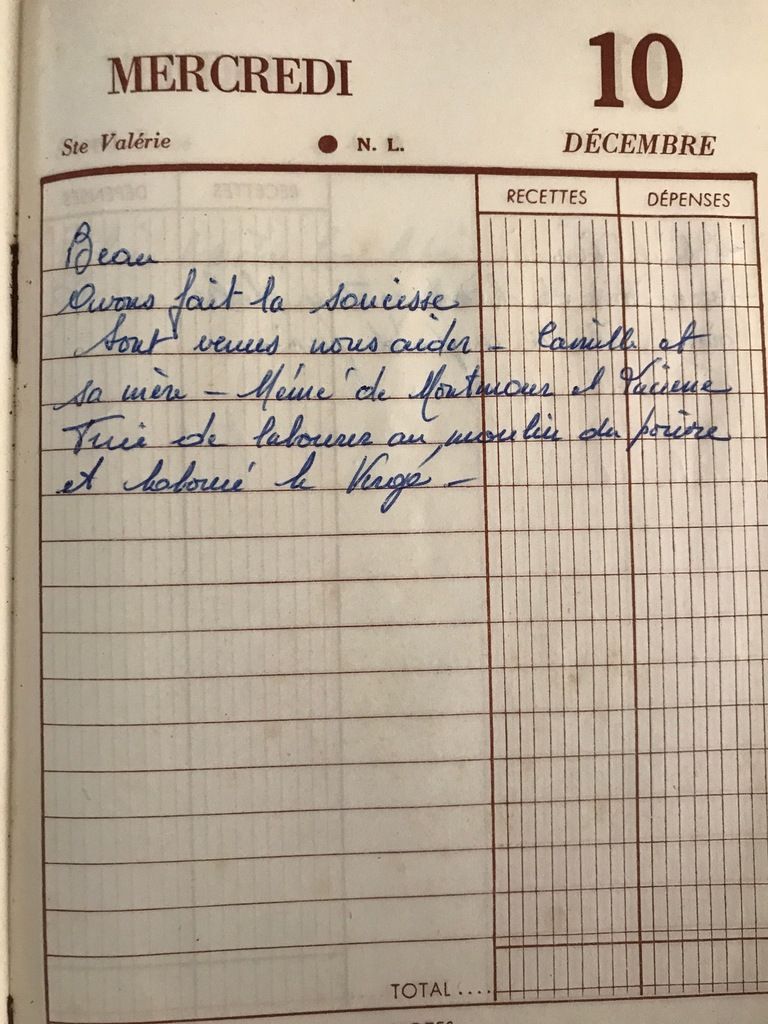 MERCREDI 10
Ste Valérie ● N. L. DÉCEMBRE
RECETTES DÉPENSES
Beau
Avons fait la saucisse
Sont venues nous aider – Camille et
sa mère – Mémé de Montmour et Lucienne
Fini de labourer au moulin du
et labouré le Vergé –
TOTAL ....